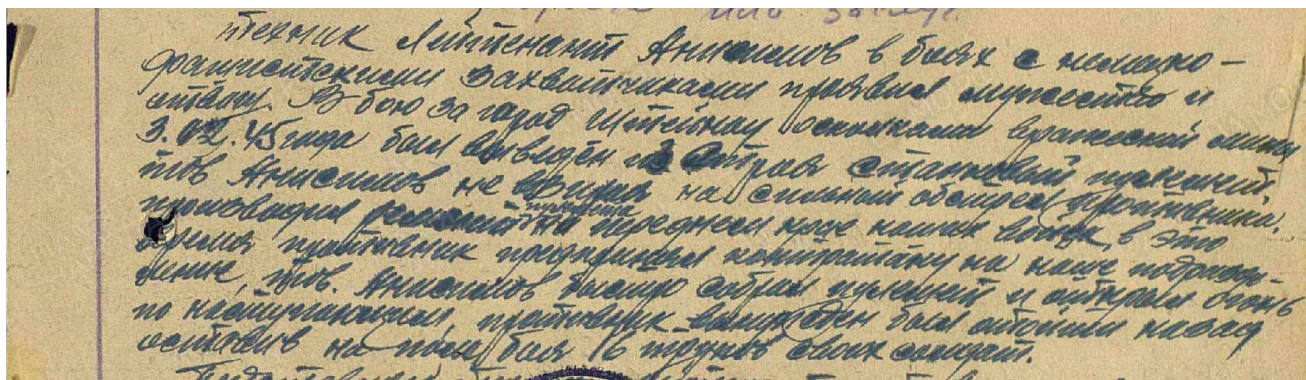 или заслуг.
техник Лейтенант Анисимов в боях с немецко-
фашистскими захватчиками проявил мужество и
отвагу. В бою за город Штейнау осколками вражеской мины
3.02.45 года был выведен из строя станковый пулемет.
тов Анисимов не взирая на сильный обстрел противника,
производил ремонт на переднем крае наших войск, в это
время противник предпринял контратаку на наше подразде-
ление, тов. Анисимов быстро собрал пулемет и открыл огонь
по наступающим, противник вынужден был отойти назад
оставив на поле боя 16 трупов своих солдат.